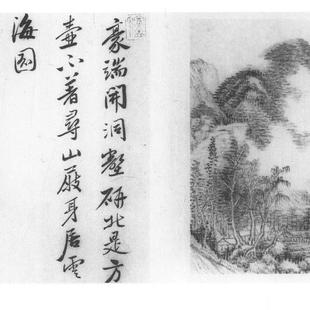 豪端開洞壑研北是方
壺不著尋山屐身居雲
海圖